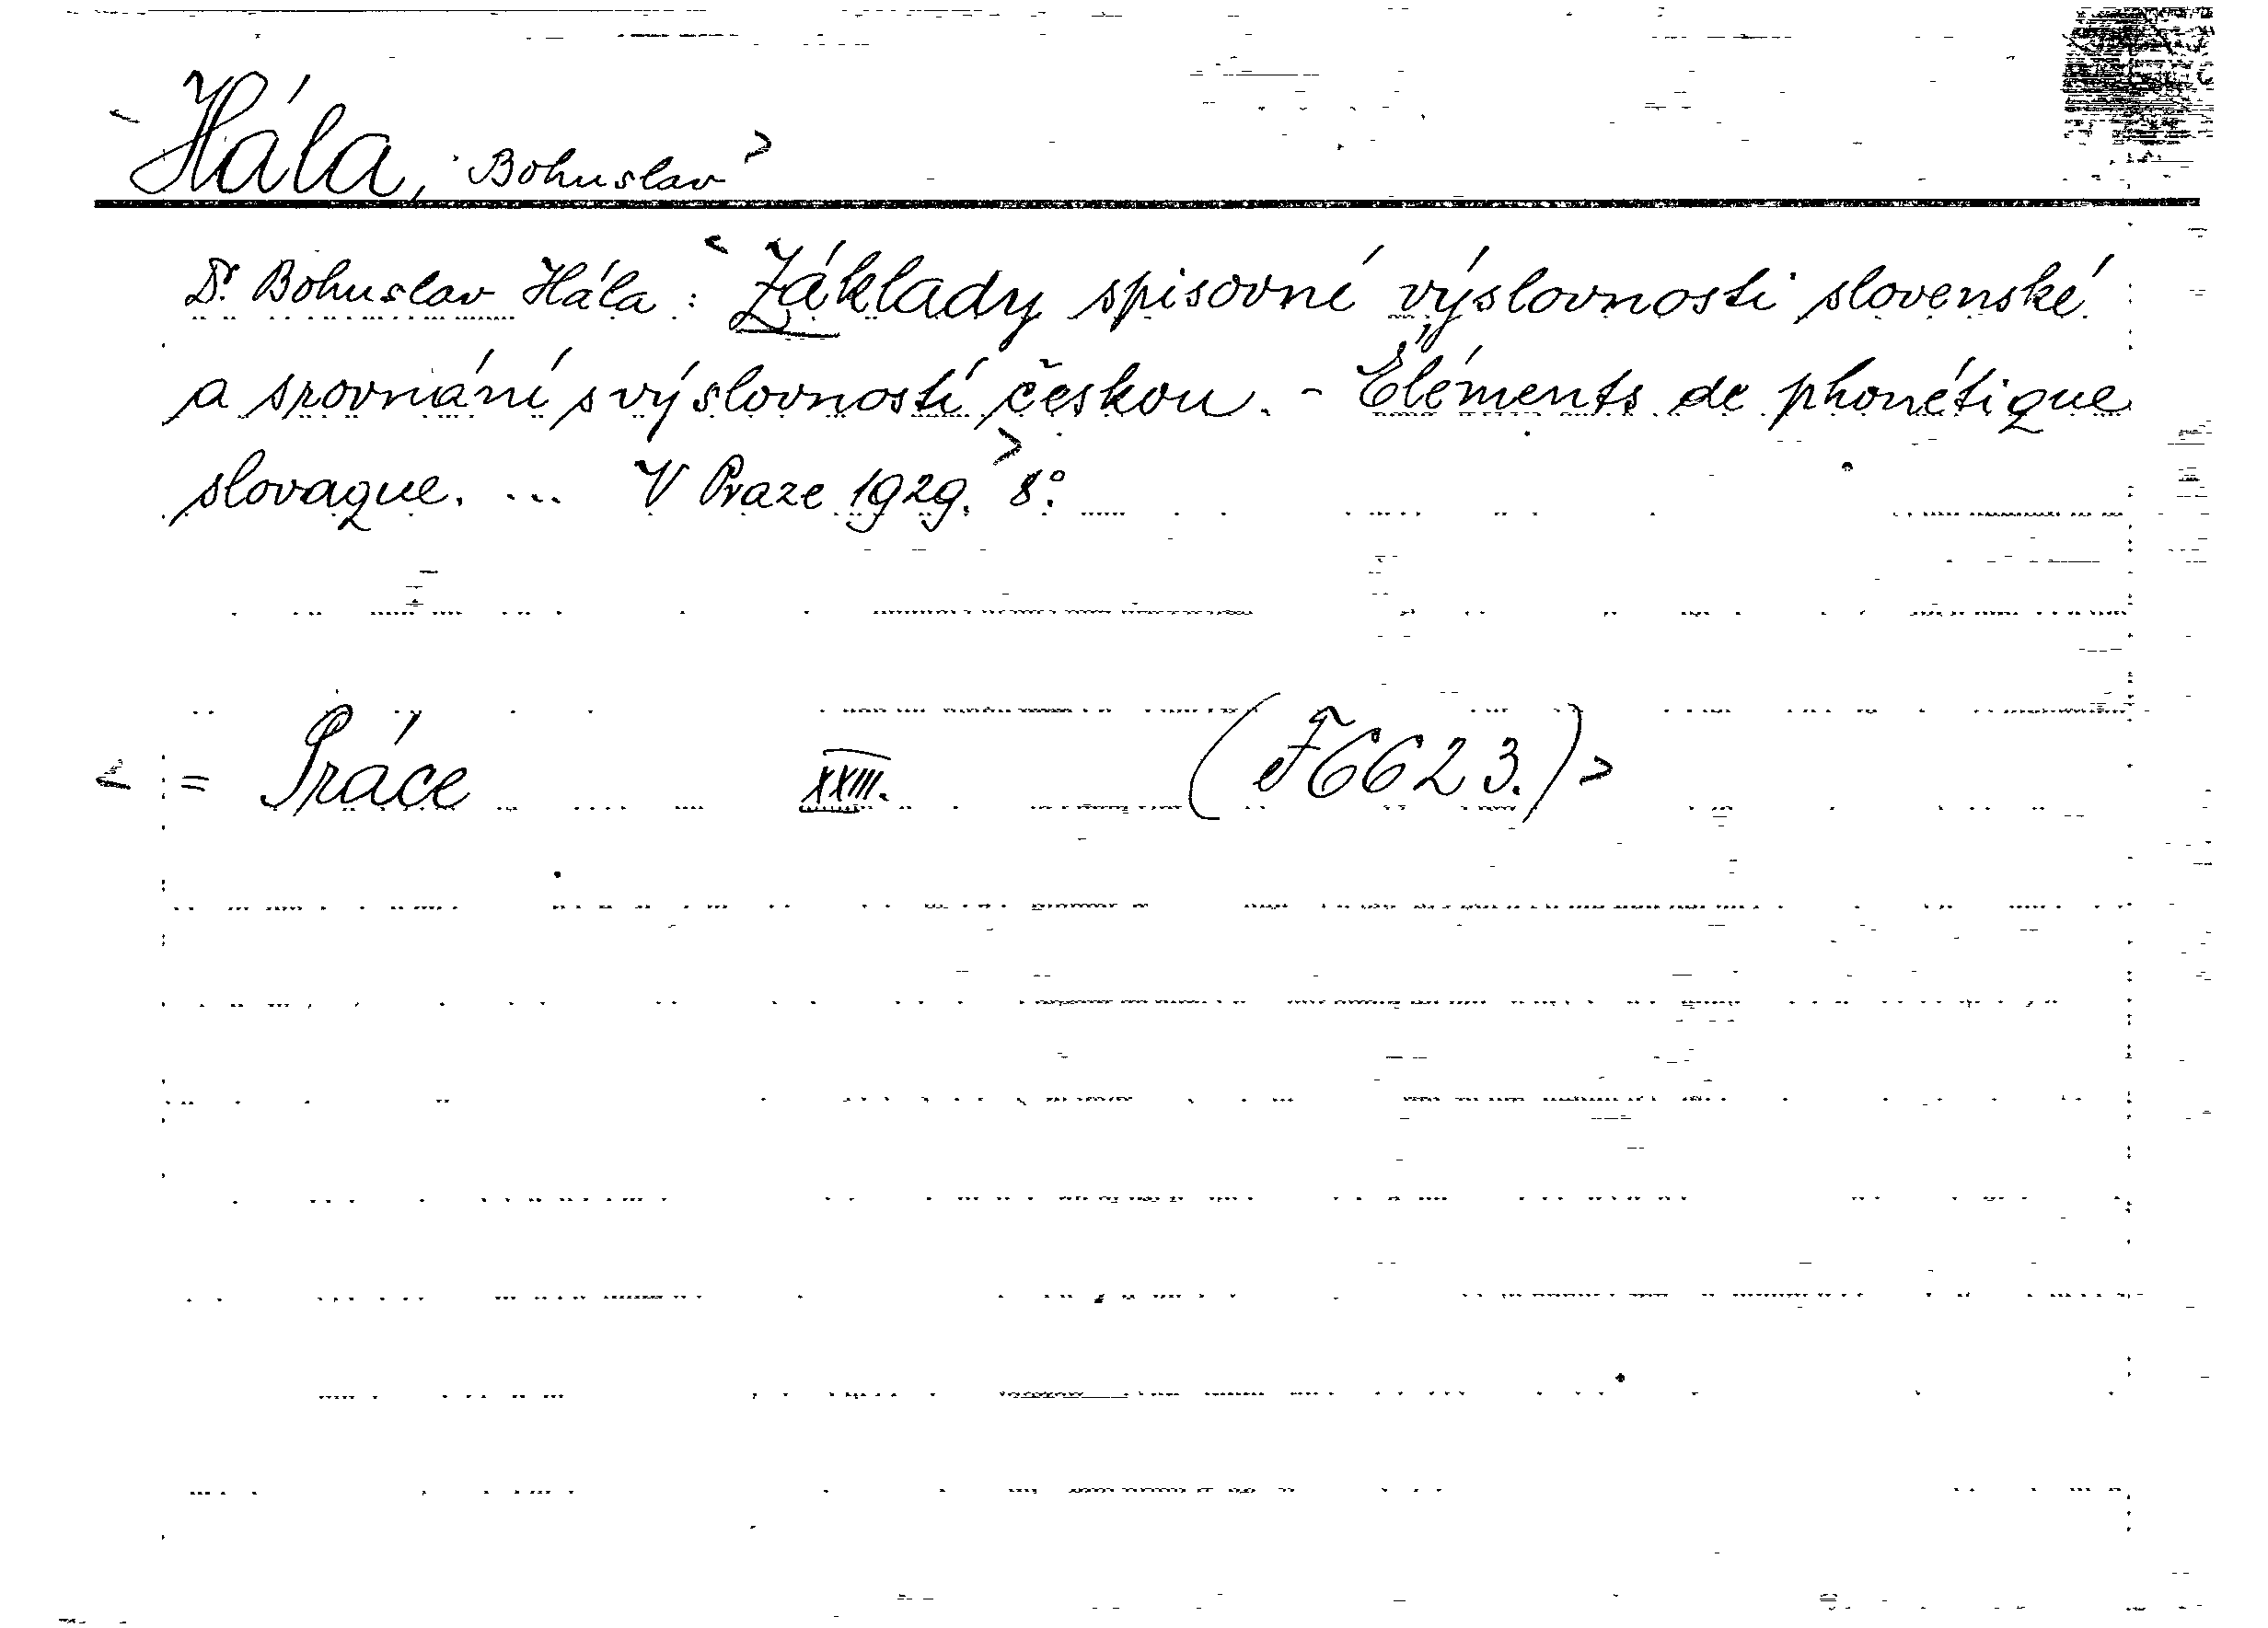 < Hála, Bohuslav >
Dr. Bohuslav Hála : < Základy spisovné výslovnosti slovenské
a srovnání s výslovností českou. - Éléments de phonétique
slovaque. ... V Praze 1929. > 8°.
< = Práce XXIII. (F6623.) >